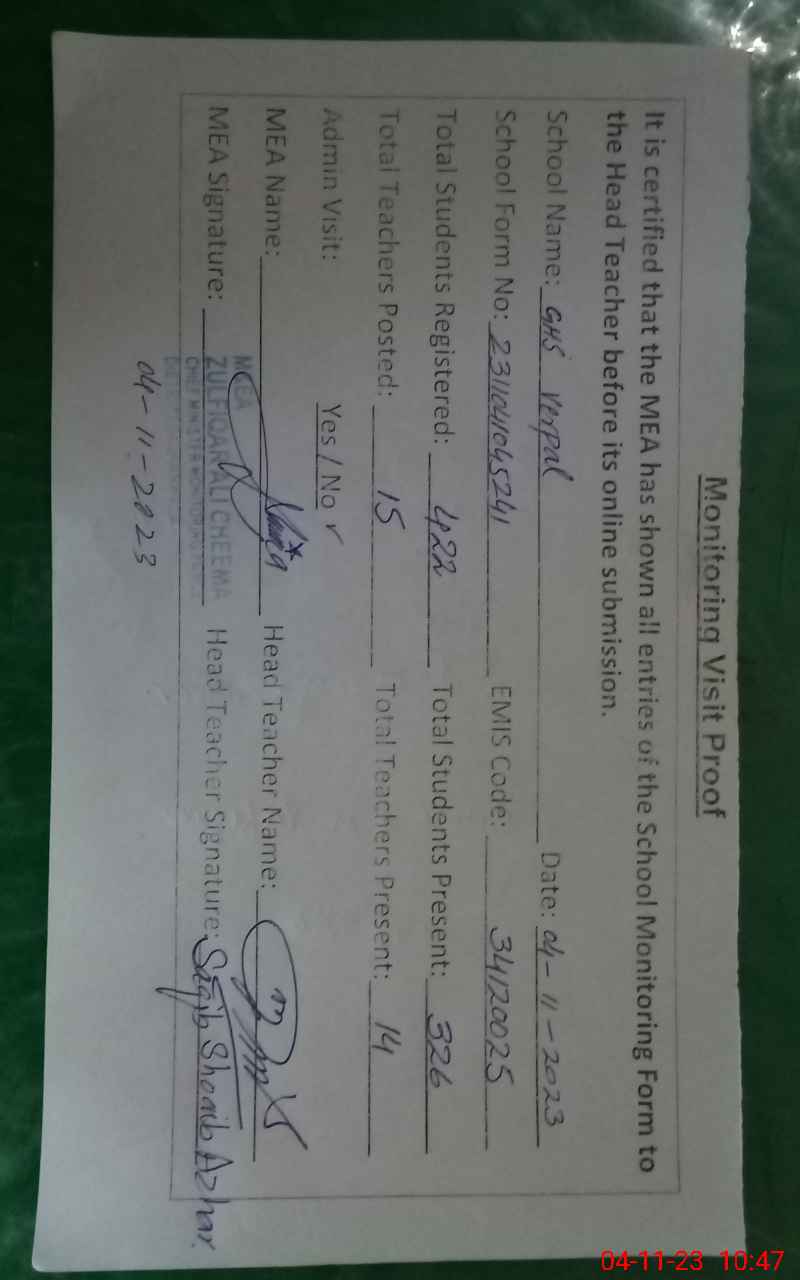 Monitoring Visit Proof
It is certified that the MEA has shown all entries of the School Monitoring Form to
the Head Teacher before its online submission.
School Name: GHS Verpal Date: 04-11-2023
School Form No: 231104045241 EMIS Code: 34120025
Total Students Registered: 422 Total Students Present: 326
Total Teachers Posted: 15 Total Teachers Present: 14
Admin Visit: Yes / No ✓
MEA Name: Head Teacher Name:
MEA Signature: Head Teacher Signature: Saqib Shoaib Azhar.
MEA
ZULFIQAR ALI CHEEMA
CHIEF MINISTER MONITORING FORCE
04-11-2023
04-11-23 10:47